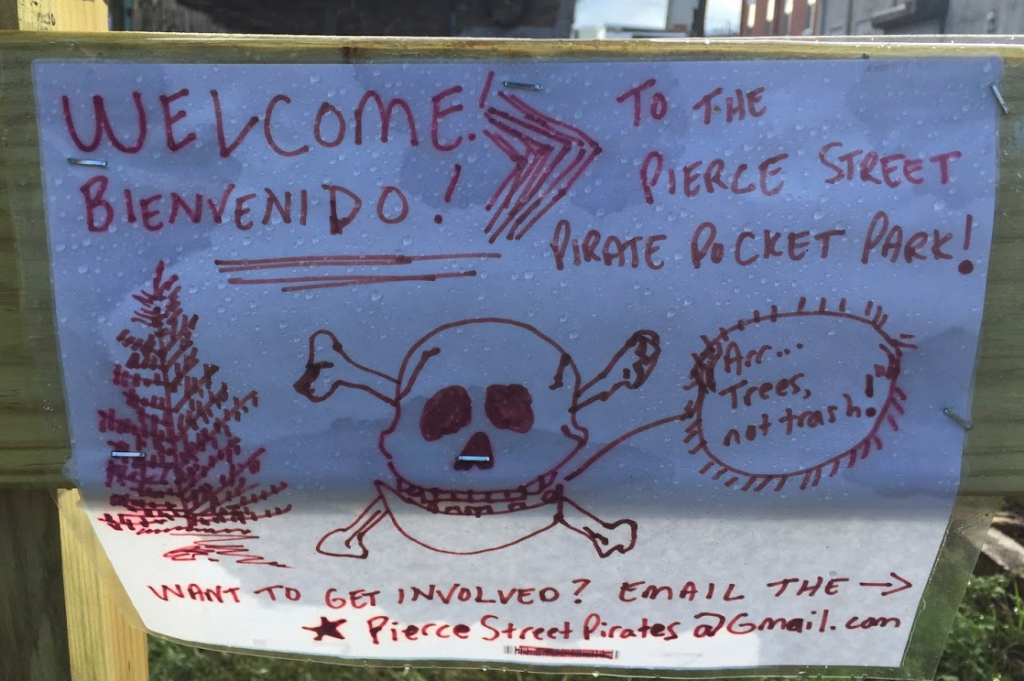 WELCOME!
BIENVENIDO!
TO THE
PIERCE STREET
PIRATE POCKET PARK!
Arr...
Trees,
not trash!
WANT TO GET INVOLVED? EMAIL THE →
★ PierceStreetPirates@Gmail.com